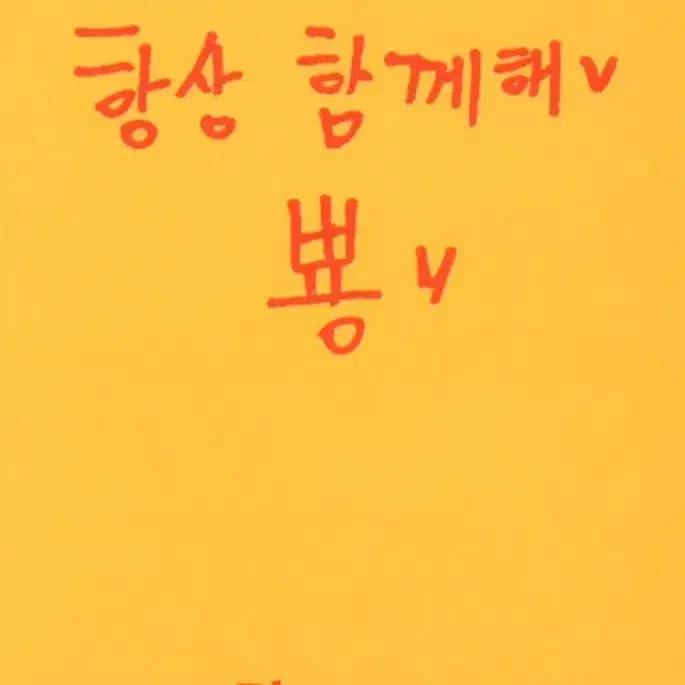 항상 함께해v
뿅v